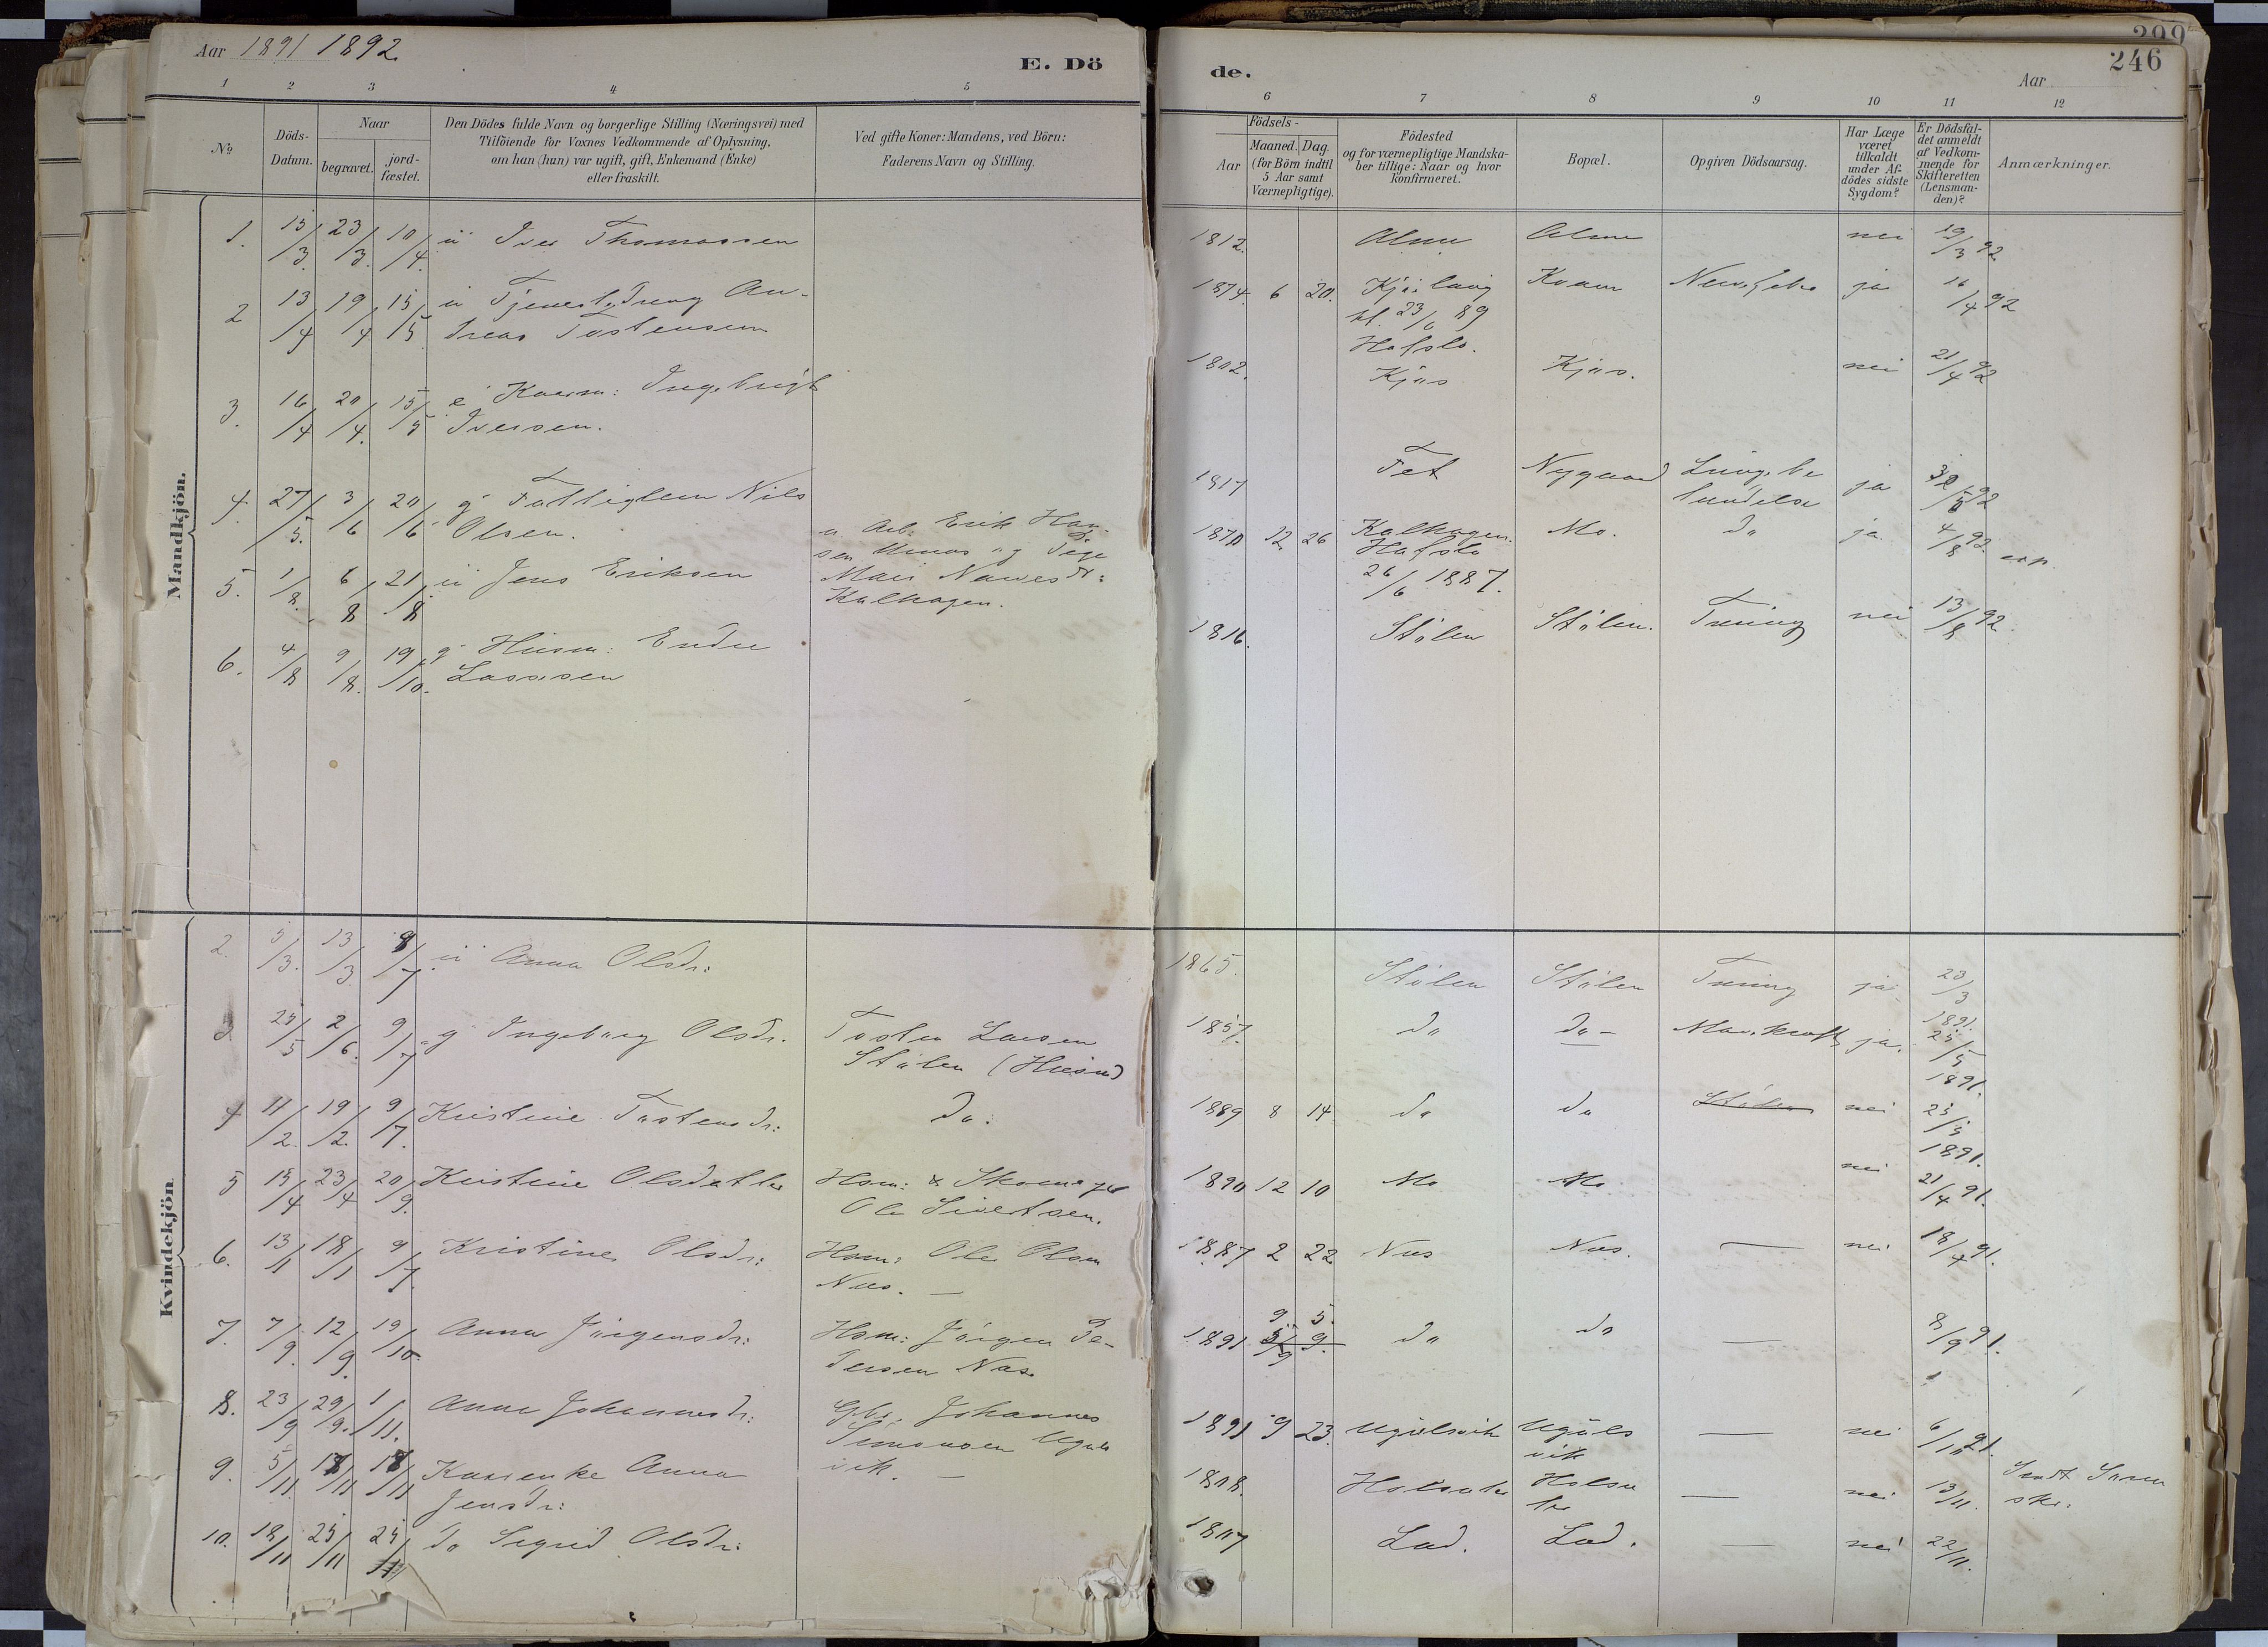 Aar 1891 1892.
E. Dö
de.
299
246
Aar
1 2 3 4 5 6 7 8 9 10 11 12
No
Döds-Datum.
Naar
begravet.
jord-fæstet.
Den Dödes fulde Navn og borgerlige Stilling (Næringsvei) med
Tilföiende for Voxnes Vedkommende af Oplysning,
om han (hun) var ugift, gift, Enkemand (Enke)
eller fraskilt.
Ved gifte Koner: Mandens, ved Börn:
Faderens Navn og Stilling.
Födsels-
Aar
Maaned. Dag.
(for Börn indtil
5 Aar samt
Værnepligtige).
Födested
og for værnepligtige Mandska-
ber tillige: Naar og hvor
konfirmeret.
Bopæl.
Opgiven Dödsaarsag.
Har Læge
været
tilkaldt
under Af-
dödes sidste
Sygdom?
Er Dödsfal-
det anmeldt
af Vedkom-
mende for
Skifteretten
(Lensman-
den)?
Anmærkninger.
Mandkjön.
1. 15/3. 23/3. 10/4. ü Iver Thomassen 1812. Alme Alme nei 19/3 92
2 13/4 19/4 15/5 ü Tjenestedreng An-
dreas Tostensen 1874. 6 20. Kvam ja 16/4 92
kf. 23/6 89
Hafslo.
3. 16/4 20/4. 15/5 e Kaarm: Ingebrigt
Iversen. 1802. Kjøs Kjøs. nei 21/4 92
4. 27/5. 3/6 20/6 g Fattiglem Nils
Olsen. 1817 Fet Nygaard Lungebe
tændelse ja
5. 1/8. 6/8 21/8 ü Jens Eriksen
u. Arb. Erik Han-
sen Moas og Pige
Mari Nawesdr:
Kalhagen.
1870 12 26 Kalhagen.
Hafslo
26/6 1887.
Mo. do ja 4/8 92.
6. 4/8 9/8. 19/10. g Husm: Endre
Lassesen 1816. Stølen Stølen. Tæring nei 13/8 92.
Kvindekjön.
2. 5/3. 13/3 9/7 ü Anna Olsdr: 1865. Stølen Stølen Tæring ja 23/3
1891.
3 25/5 2/6. 9/7 g Ingeborg Olsdr. Tosten Larsen
Stølen (Husm) 1857. do do - Mavekræft ja. 25/5
1891.
4 11/2. 19/2. 9/7. Kristine Tostensdr: Do: 1889 8 14 do do Stølen nei 25/5
1891.
5 15/4 23/4 20/9. Kristine Olsdatter Hsm: & Skomager
Ole Sivertsen. 1890 12 10 Mo Mo nei 21/4 91.
6. 13/1 18/1 9/7. Kristine Olsdr: Hsm: Ole Olsen
Næs. — 1887 2 22 Næs Næs. — nei 18/4 91.
7. 7/9. 12/9. 19/10. Anna Jörgensdr: Hsm: Jörgen Pe-
dersen Næs. 1891 9 5. do do — 8/9 91.
8. 23/9 29/9. 1/11. Anna Johannesdr: Gbr. Johannes
Simonsen Uguls
vik. — 1891 9 23. Ugulsvik Uguls
vik — nei 6/10 91.
9. 5/11. 18/11 18/11 Kaarenke Anna
Jensdr: 1808. — nei 13/11. Sendt Soren
skr:
10. 18/11 25/11 25/11 do Sigrid Olsdr: 1807 Lad. Lad. — nei 22/11.